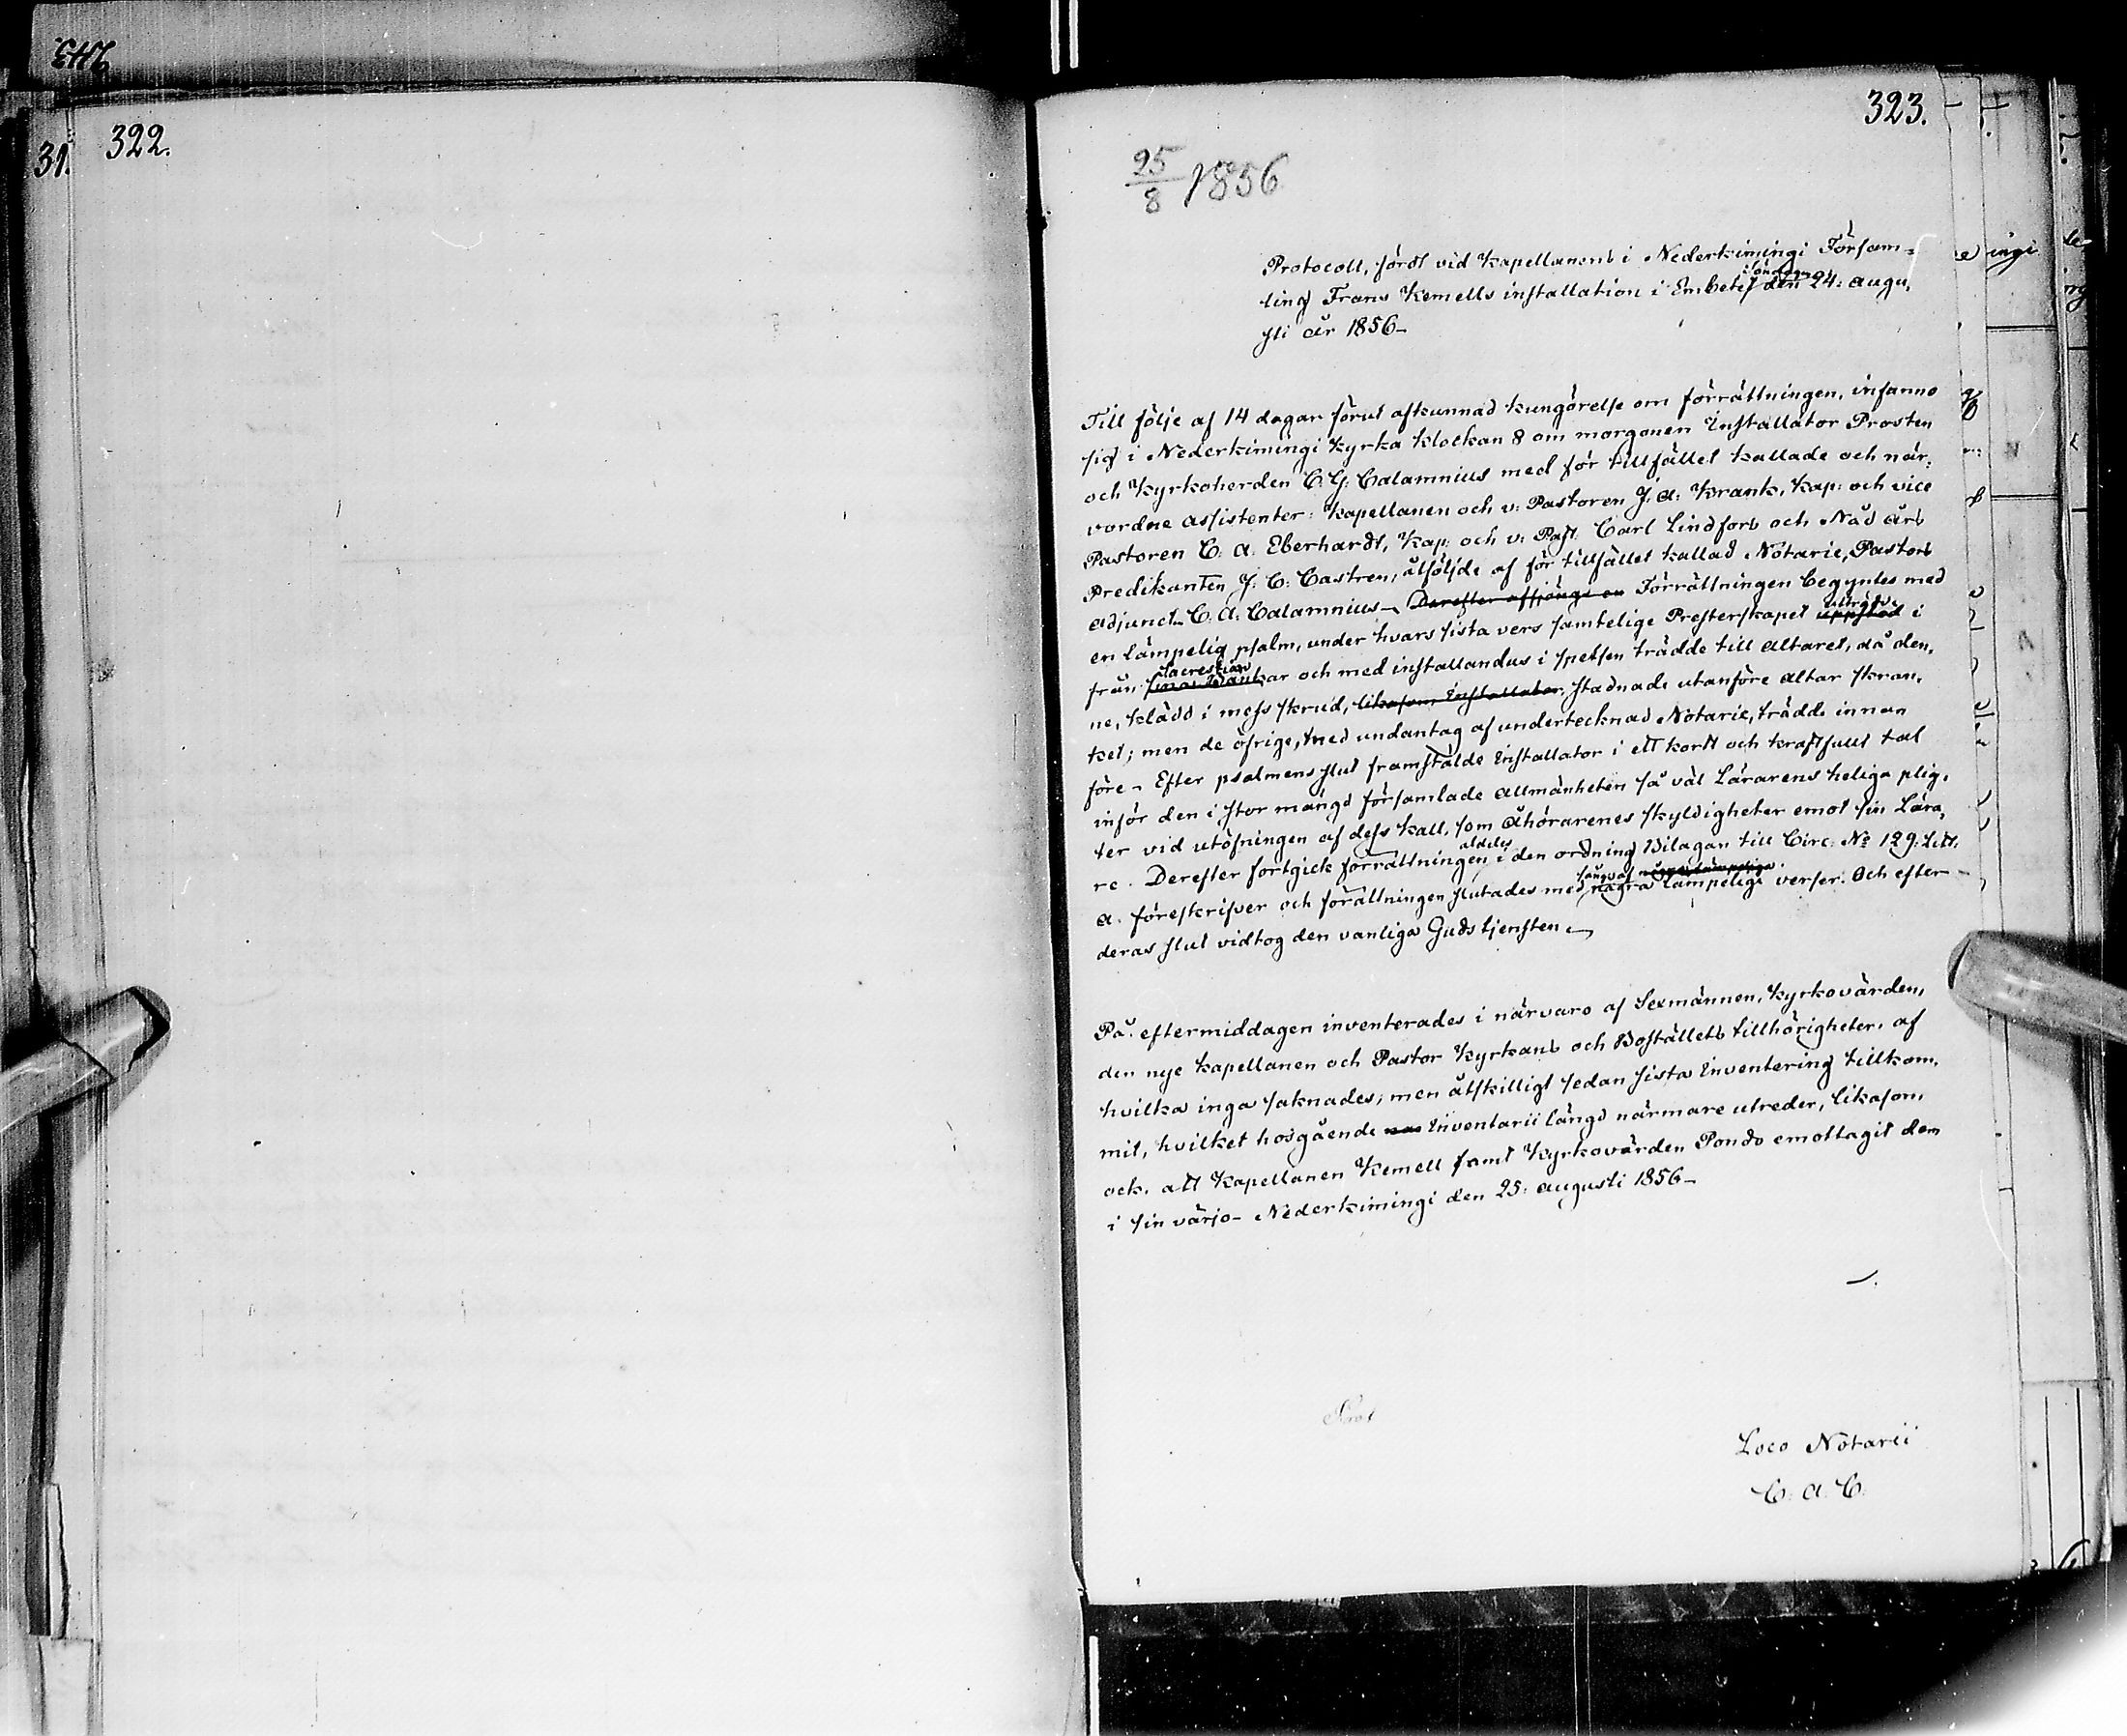 322.
31.
323.
25/8 1856
Protocoll, fördt vid Kapellanens i Nederkimingi Försam=
ling Frans Kemells installation i Embetet Söndagen den 24: augu,
sti år 1856-
Till följe af 14 dagar förut afkunnad kungörelse om förrättningen, infanno
sig i Nederkimingi Kyrka klockan 8 om morgonen Installator Prosten
och Kyrkoherden C. G: Calamnius med för tillfället kallade och när,
vordne assistenter: Kapellanen och v: Pastoren J: A: Krank, Kap: och vice
Pastoren C: A: Eberhardt, Kap: och v: Past: Carl Lindfors och Nåd års
Predikanten J. C: Castren, åtföljde af för tillfället kallad Notarie, Pastors
adjunct C. A: Calamnius- Derefter afsjöngs en Förrättningen begyntes med
en lämpelig psalm, under hvars sista vers samtelige Presterskapet uppstod i
från sina bänkar Sacrestian och med installandus i spetsen trädde till altaret, då den,
ne, klädd i mess skrud, likasom Installator, stadnade utanföre altar skran,
ket; men de öfrige, med undantag af undertecknad Notarie, trädde innan
före- Efter psalmens slut framstälde Installator i ett kort och kraftfullt tal
inför den i stor mängd församlade allmänheten så väl Lärarens heliga plig,
ter vid utöfningen af dess kall, som åhörarenes skyldigheter emot sin Lära,
re. Derefter fortgick förrättningen aldeles i den ordning Bilagan till Circ: No 129: Litt.
a. föreskrifver och förättningen slutades med sång af några lämpelige verser. Och efter
deras slut vidtog den vanliga Gudstjensten-
På eftermiddagen inventerades i närvaro af Sexmännen, Kyrkovärden,
den nye Kapellanen och Pastor Kyrkans och Boställets tillhörigheter, af
hvilka inga saknades; men åtskilligt sedan sista Inventering tillkom,
mit, hvilket hosgående Inventarii längd närmare utreder, likasom,
ock, att Kapellanen Kemell samt Kyrkovärden Pondo emottagit dem
i sin värjo- Nederkimingi den 25: augusti 1856-
Loco Notarii
C. A. C.